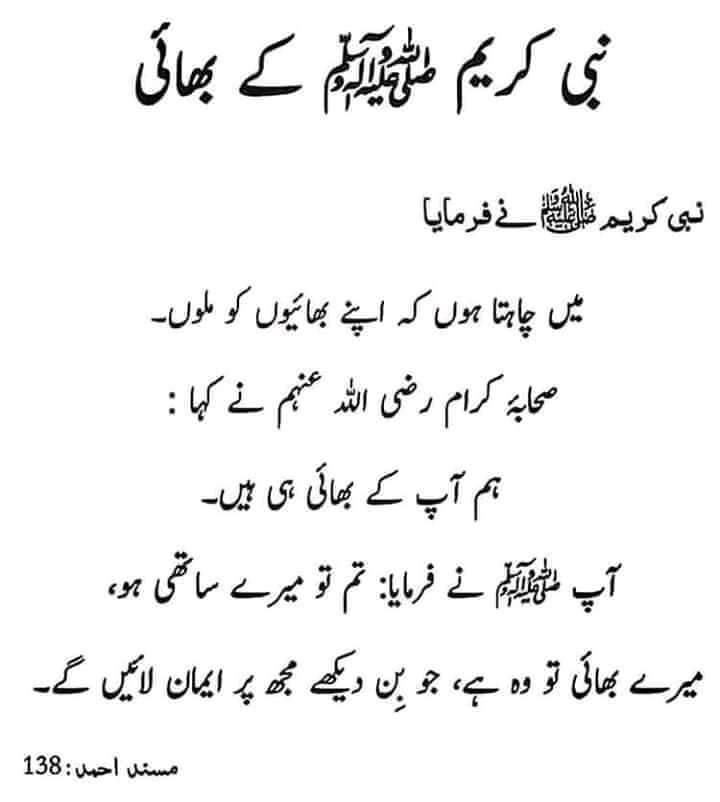 نبی کریم ﷺ کے بھائی
نبی کریم ﷺ نے فرمایا
میں چاہتا ہوں کہ اپنے بھائیوں کو ملوں۔
صحابۂ کرام رضی اللہ عنہم نے کہا :
ہم آپ کے بھائی ہی ہیں۔
آپ ﷺ نے فرمایا: تم تو میرے ساتھی ہو،
میرے بھائی تو وہ ہے، جو بِن دیکھے مجھ پر ایمان لائیں گے۔
مسند احمد: 138